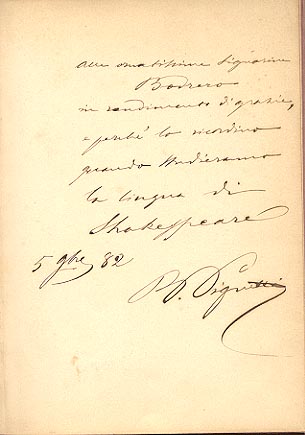 Alle ornatissime Signorine
Bodrero
in rendimento di grazie,
e perché lo ricordino
quando studieranno
la lingua di
Shakespeare
5 9bre 82
P.